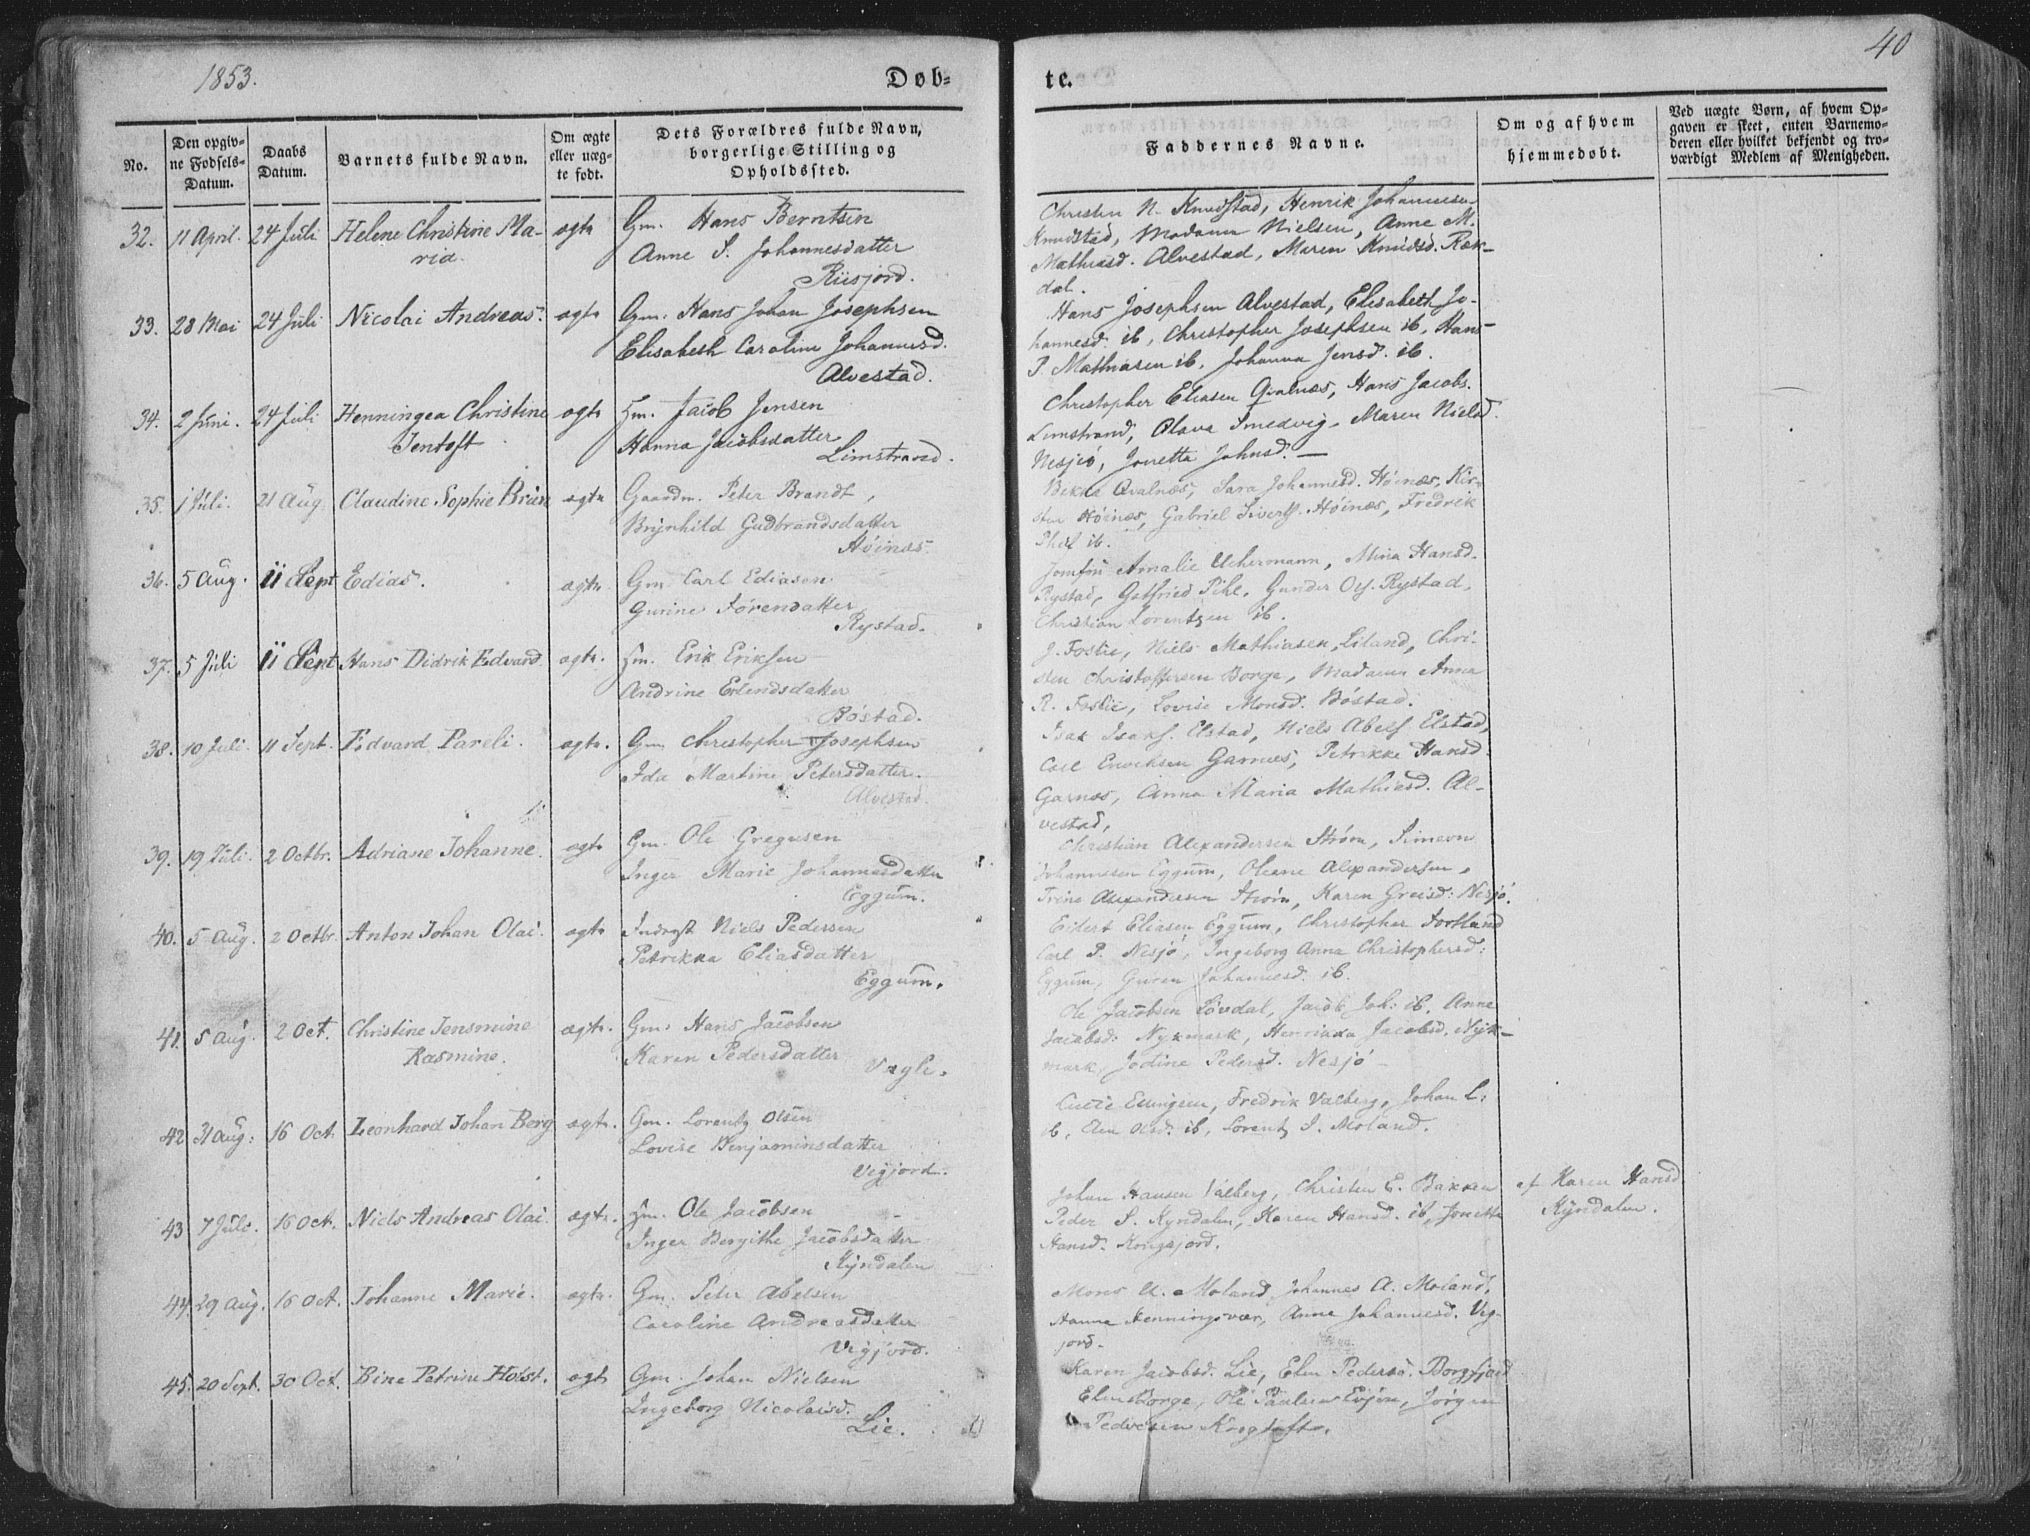 1853.
Døb-
No.
Den opgiv-
ne Fødsels-
Datum.
Daabs
Datum.
Barnets fulde Navn.
Om ægte
eller uæg-
te født.
Dets Forældres fulde Navn,
borgerlige Stilling og
Opholdssted.
32. 11 April. 24 Juli Helene Christine Ma-
ria.
ægte
Gm. Hans Berntsen
Anne S. Johannesdatter
Riisjord.
33. 28 Mai 24 Juli Nicolai Andreas. ægte
Gm. Hans Johan Josephsen
Elisabeth Caroline Johannesd.
Alvestad.
34. 2 Juni. 24 Juli Henningea Christine
Jentoft
ægte
Hm. Jacob Jensen
Hanna Jacobsdatter
Limstrand.
35. 1 Juli. 21 Aug. Claudine Sophie Brun ægte
Gaardm. Peter Brandt,
Brynhild Gudbrandsdatter
Høinæs.
36. 5 Aug. 11 Sept Edias. ægte.
Gm. Carl Ediasen
Gurine Sørensdatter
Rystad.
37. 5 Juli 11 Sept Hans Didrik Edvard ægte.
Hm. Erik Eriksen
Andrine Erlendsdatter
Bøstad.
38. 10 Juli. 11 Sept. Edvard Pareli. ægte.
Gm. Christopher Josephsen
Ida Martine Petersdatter.
Alvestad.
39. 19 Juli. 2 Octbr. Adriane Johanne. ægte
Gm. Ole Gregusen
Inger Marie Johannesdatter
Eggum.
40. 5 Aug. 2 Octbr. Anton Johan Olai. ægte
Inderst Niels Pedersen
Petrikka Eliasdatter
Eggum.
41. 5 Aug. 2 Oct. Christine Jensmine
Rasmine.
ægte.
Gm. Hans Jacobsen
Karen Pedersdatter
Vagle.
42 31 Aug. 16 Oct. Leonhard Johan Berg ægte.
Gm. Lorentz Olsen
Lovise Benjaminsdatter
Vigjord.
43 7 Juli. 16 Oct. Niels Andreas Olai. ægte.
Hm. Ole Jacobsen
Inger Bergithe Jacobsdatter
Kyndalen
44. 29 Aug. 16 Oct. Johanne Marie. ægte.
Gm. Peter Abelsen
Caroline Andreasdatter
Vigjord.
45. 20 Sept. 30 Oct. Bine Petrine Holst. ægte
Gm. Johan Nielsen
Ingeborg Nicolaisd.
Lie.
40
te.
Faddernes Navne.
Om og af hvem
hjemmedøbt.
Ved uægte Børn, af hvem Op-
gaven er skeet, enten Barnemo-
deren eller hvilket bekjendt og tro-
værdigt Medlem af Menigheden.
Christen N. Knudstad, Henrik Johannesen
Knudstad, Madame Nielsen, Anne M.
Mathiasd. Alvestad, Maren Knudsd. Ræk-
dal.
Hans Josephsen Alvestad, Elisabeth Jo-
hannesd. ib, Christopher Josephsen ib, Hans
P. Mathiasen ib, Johanna Jensd. ib.
Christopher Eliasen Qvalnæs, Hans Jacobs.
Limstrand, Olava Smedvig, Maren Nielsd.
Nesjeö, Jonetta Johnsd. —
Qvalnæs, Sara Johannesd. Høinæs, Kir-
Høinæs, Gabriel Siverts. Høinæs, Fredrik
ib.
Jomfru Amalie Uchermann, Mina Hansd.
Rystad, Gotfried Pihl, Gunder Ols. Rystad,
Christian Lorentzen ib.
J. Fostie, Niels Mathiasen Liland, Chri-
sten Christoffersen Borge, Madame Anna
R. Fostie, Lovise Monsd. Bøstad.
Isak Isaks. Elstad, Niels Abels. Elstad,
Carl Enochsen Garnæs, Petrikke Hansd.
Garnæs, Anna Maria Mathiasd. Al-
vestad,
Christian Alexandersen Strøm, Simeon
Johannesen Eggum, Oleane Alexandersen,
Trine Alexandersen Strøm, Karen Greisd: Nesjø.
Eilert Eliasen Eggum, Christopher Sortland
Carl P. Nesjø, Ingeborg Anna Christophersd:
Eggum, Guren Johannesd. ib.
Ole Jacobsen Løvdal, Jacob Joh: ib, Anne
Jacobsd: Nykmark, Henrikka Jacobsd. Nyk-
mark, Jodine Pedersd. Nesjø —
Ellingsen, Fredrik Valberg, Johan L.
ib, Olsd. ib, Lorentz J. Moland.
Johan Hansen Valberg, Christen E. Bakken
Peder S. Kyndalen, Karen Hansd. ib, Jonetta
Hansd. Kongsjord.
af Karen Hansd
Kyndalen.
Mons A. Moland, Johannes A. Moland,
Hanna Henningsvær, Anne Johannesd. Vig-
jord.
Karen Jacobsd. Lie, Elen Pedersd. Borgfjord
Elen Borge, Ole Paulsen Evjen, Jørgen
Pedersen Krogtoft.